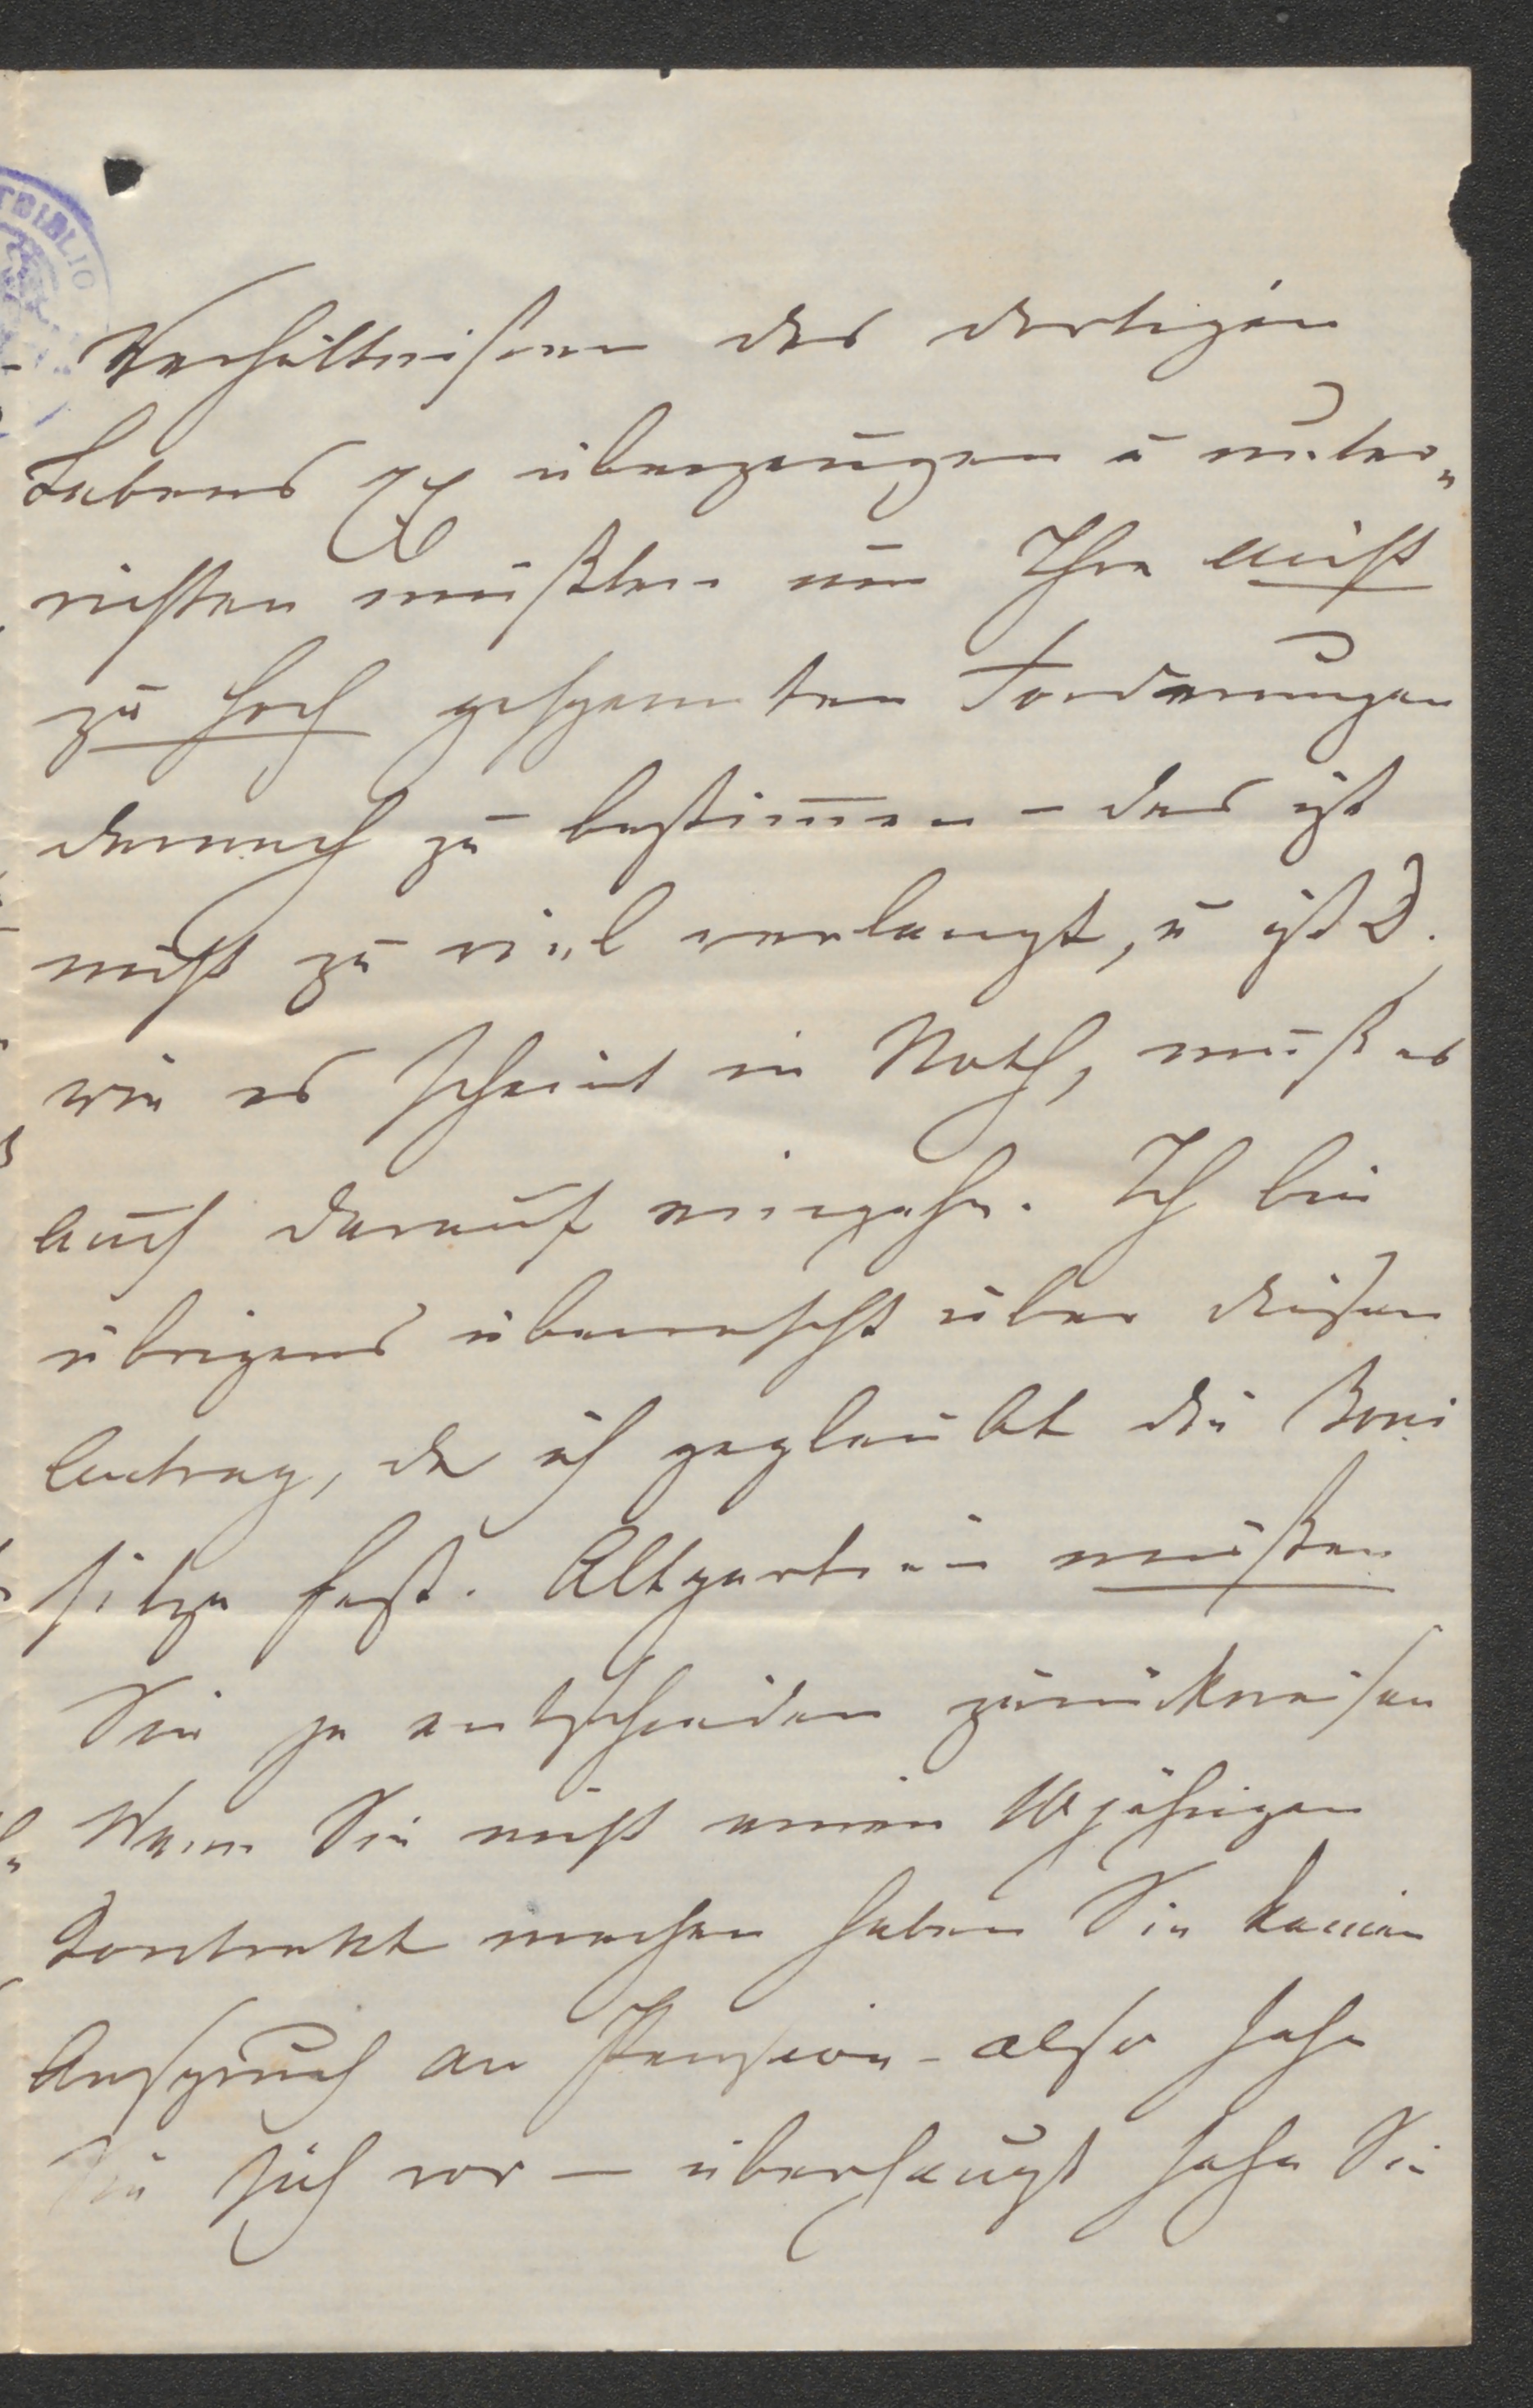 TBIBLIO
Verhältnißen des dortigen
Lebens etc überzeugen u unter„
richten müßten um Ihre nicht
zu hoch gespannten Forderungen
darnach zu bestim̄en – das ist
nicht zu viel verlangt, u ist D.
wie es scheint in Noth, muß es
auch darauf eingehn. Ich bin
übrigens überrascht über diesen
Antrag, da ich geglaubt die Boni
sitze fest. Altpartieen müßen
Sie ja entschieden zurückweisen
Wenn Sie nicht einen 10 jährigen
Contrakt machen haben Sie keinen
Anspruch an Pension – also sehn
Sie sich vor – überhaupt sehn Sie